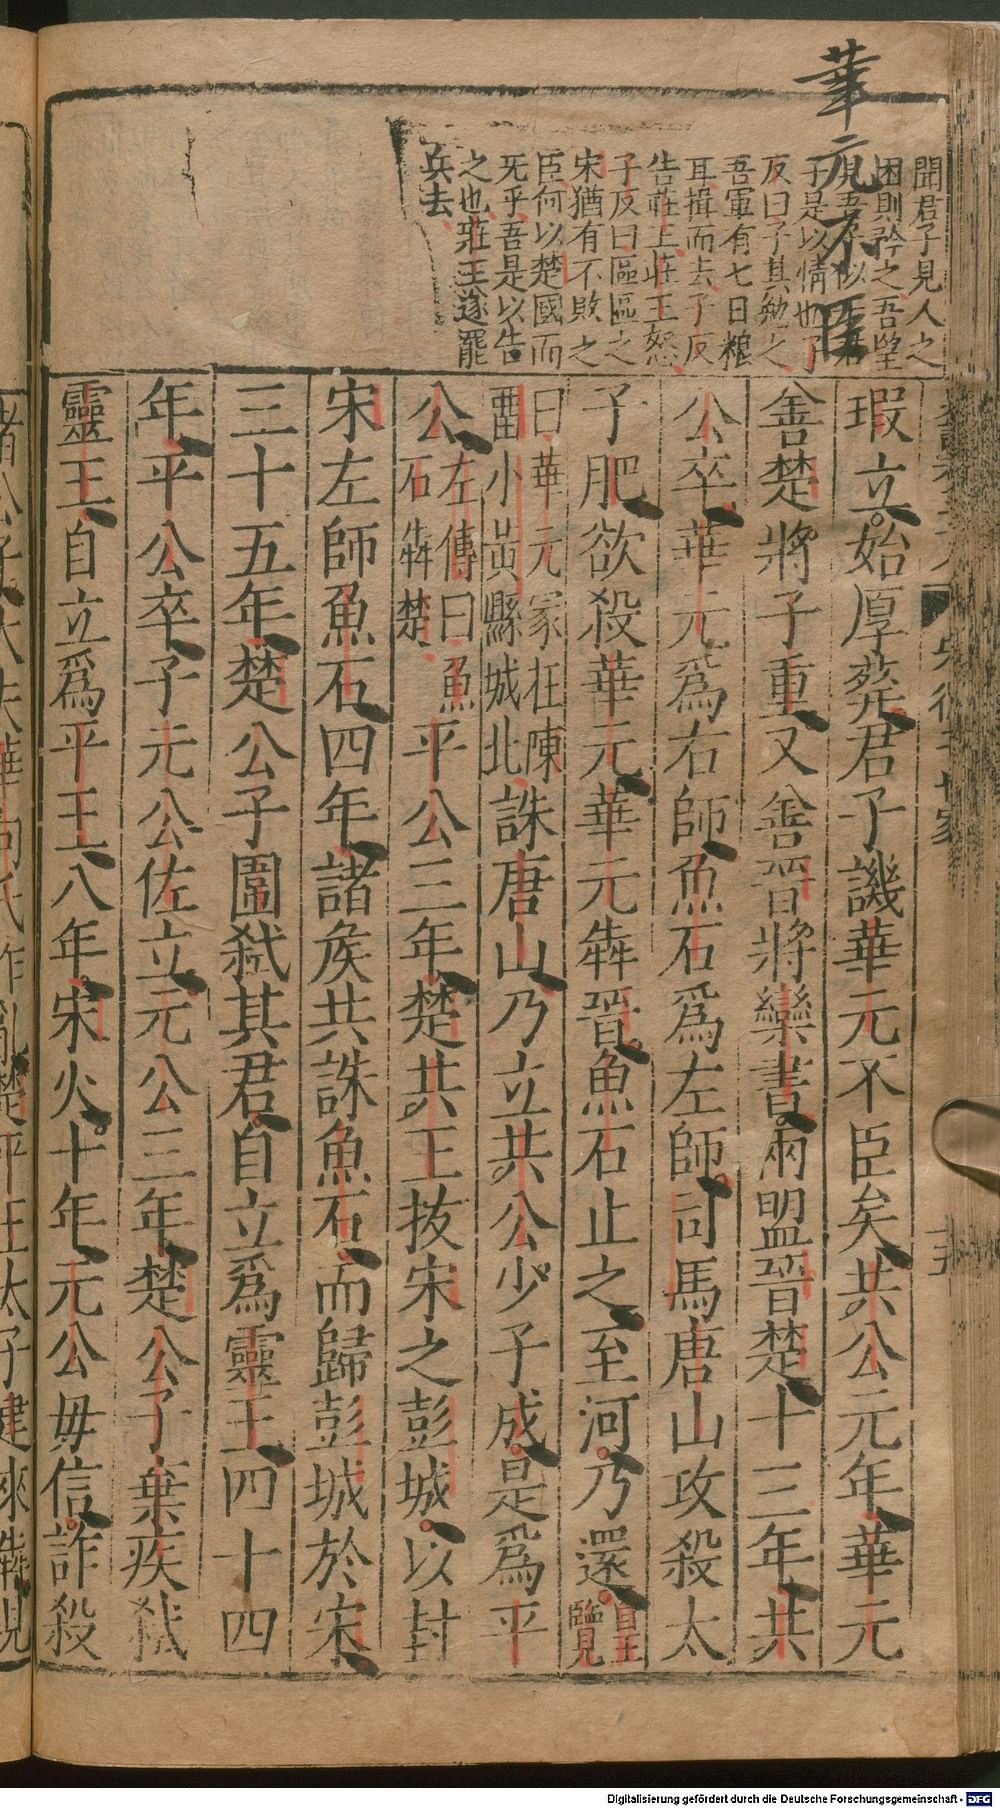 華元不臣
聞君子見人之
困則矜之吾望
反曰子其勉之
吾軍有七日粮
耳揖而去子反
告莊王莊王怒
子反曰區區之
宋猶有不欺之
臣何以楚國而
旡乎吾是以告
之也莊王遂罷
兵去
瑕立始厚葬君子譏華元不臣矣共公元年華元
善楚將子重又善晉將欒書兩盟晉楚十三年共
公卒華元爲右師魚石爲左師司馬唐山攻殺太
子肥欲殺華元華元犇晉魚石止之至河乃還皇
覽
曰華元冢在陳
畱小黃縣城北
誅唐山乃立共公少子成是爲平
公
左傳曰魚
石犇楚
平公三年楚共王拔宋之彭城以封
宋左師魚石四年諸矦共誅魚石而歸彭城於宋
三十五年楚公子圍弑其君自立爲靈王四十四
年平公卒子元公佐立元公三年楚公子棄疾弑
靈王自立爲平王八年宋火十年元公毋信詐殺
諸公子大夫華向氏作亂楚平王太子建來犇見
Digitalisierung gefördert durch die Deutsche Forschungsgemeinschaft - DFG